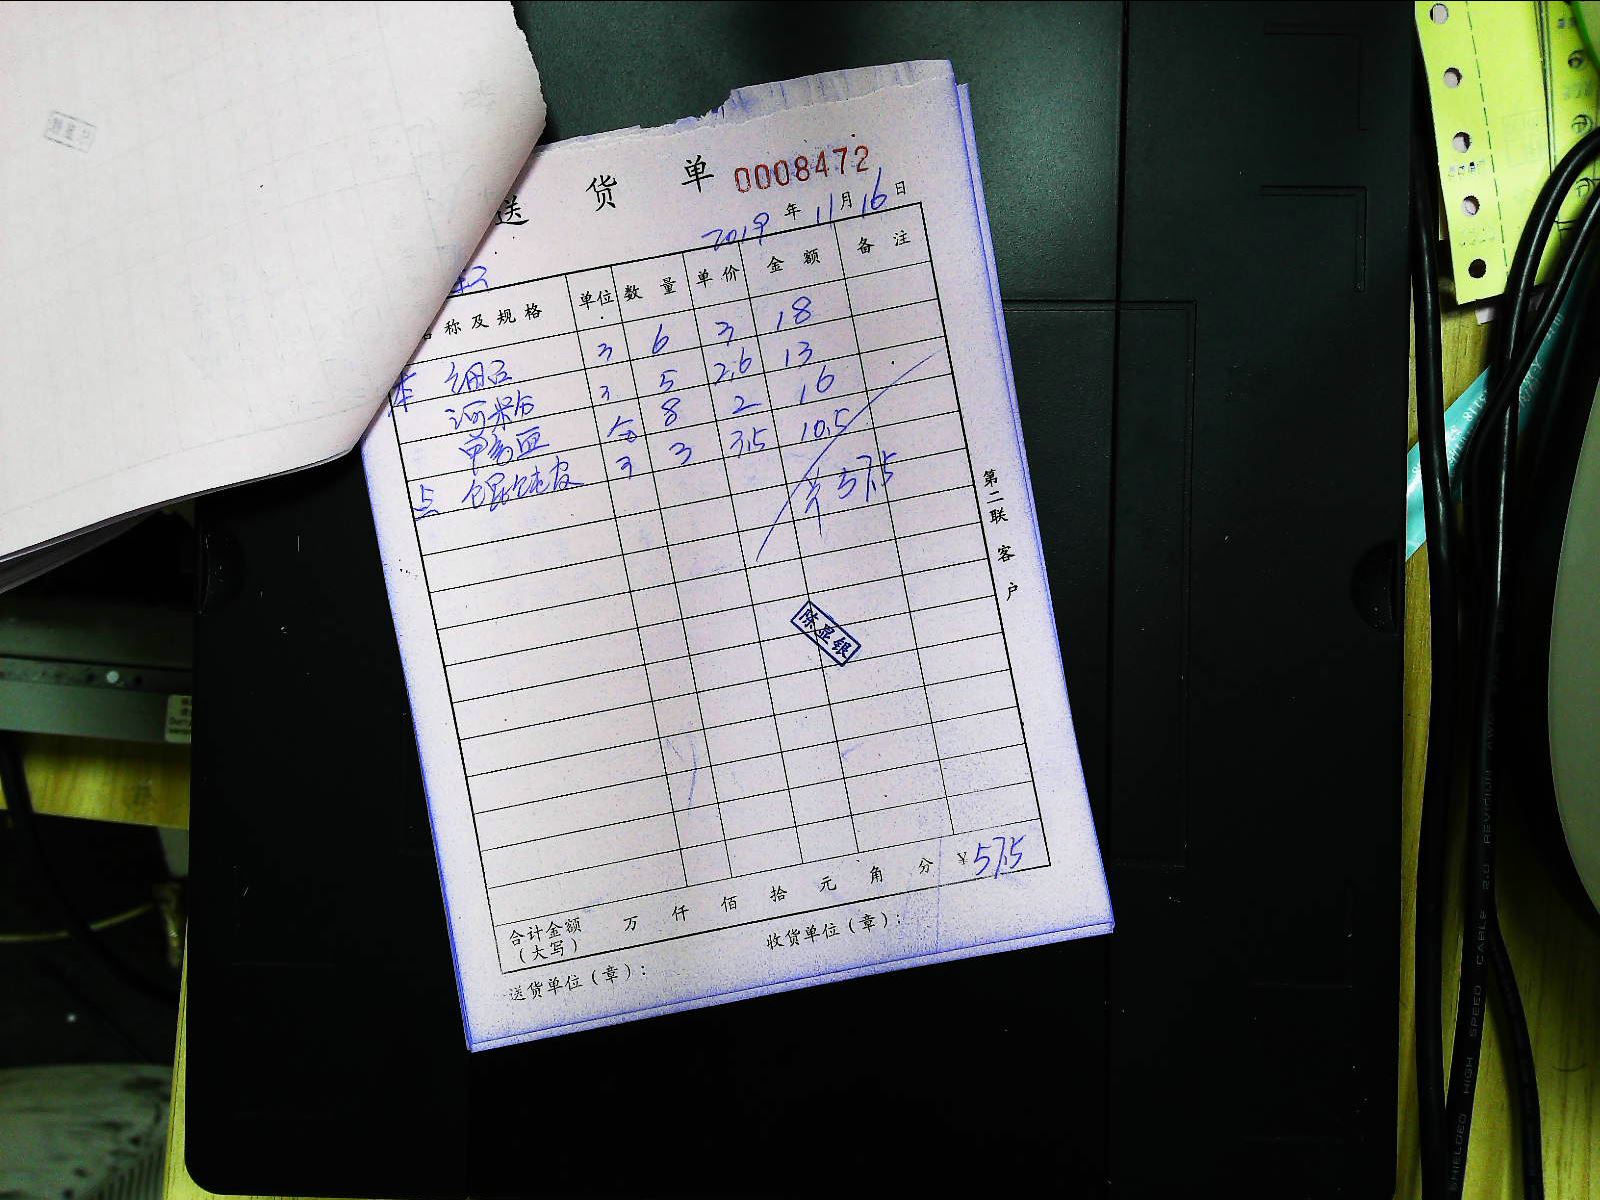 送 货 单 0008472
2019 年 11 月 16 日
名称及规格 单位 数量 单价 金额 备注
本 3 6 3 18
河粉 3 5 2.6 13
8 2 16
点 馄饨皮 3 3 3.5 10.5
共 57.5
第二联 客户
陈显银
合计金额(大写) 万 仟 佰 拾 元 角 分 ¥57.5
送货单位(章): 收货单位(章):
SHIELDED HIGH SPEED CABLE 2.0 REVISION AWG